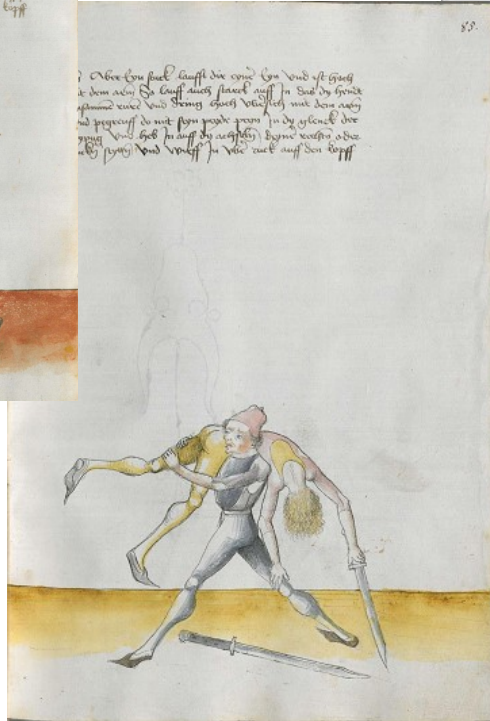 kopff
85.
Aber eyn stuck laufft dir eyner eyn vnd ist hoch
dem arm So lauff auch starck auff In das dy hendt
vnd dring hoch vbersich mit dem arm
pegreuff do mit seyn payde payn In dy glenck der
vnd heb In auff dy achseln deyner rechten oder
vnd wurff In vber ruck auff den kopff